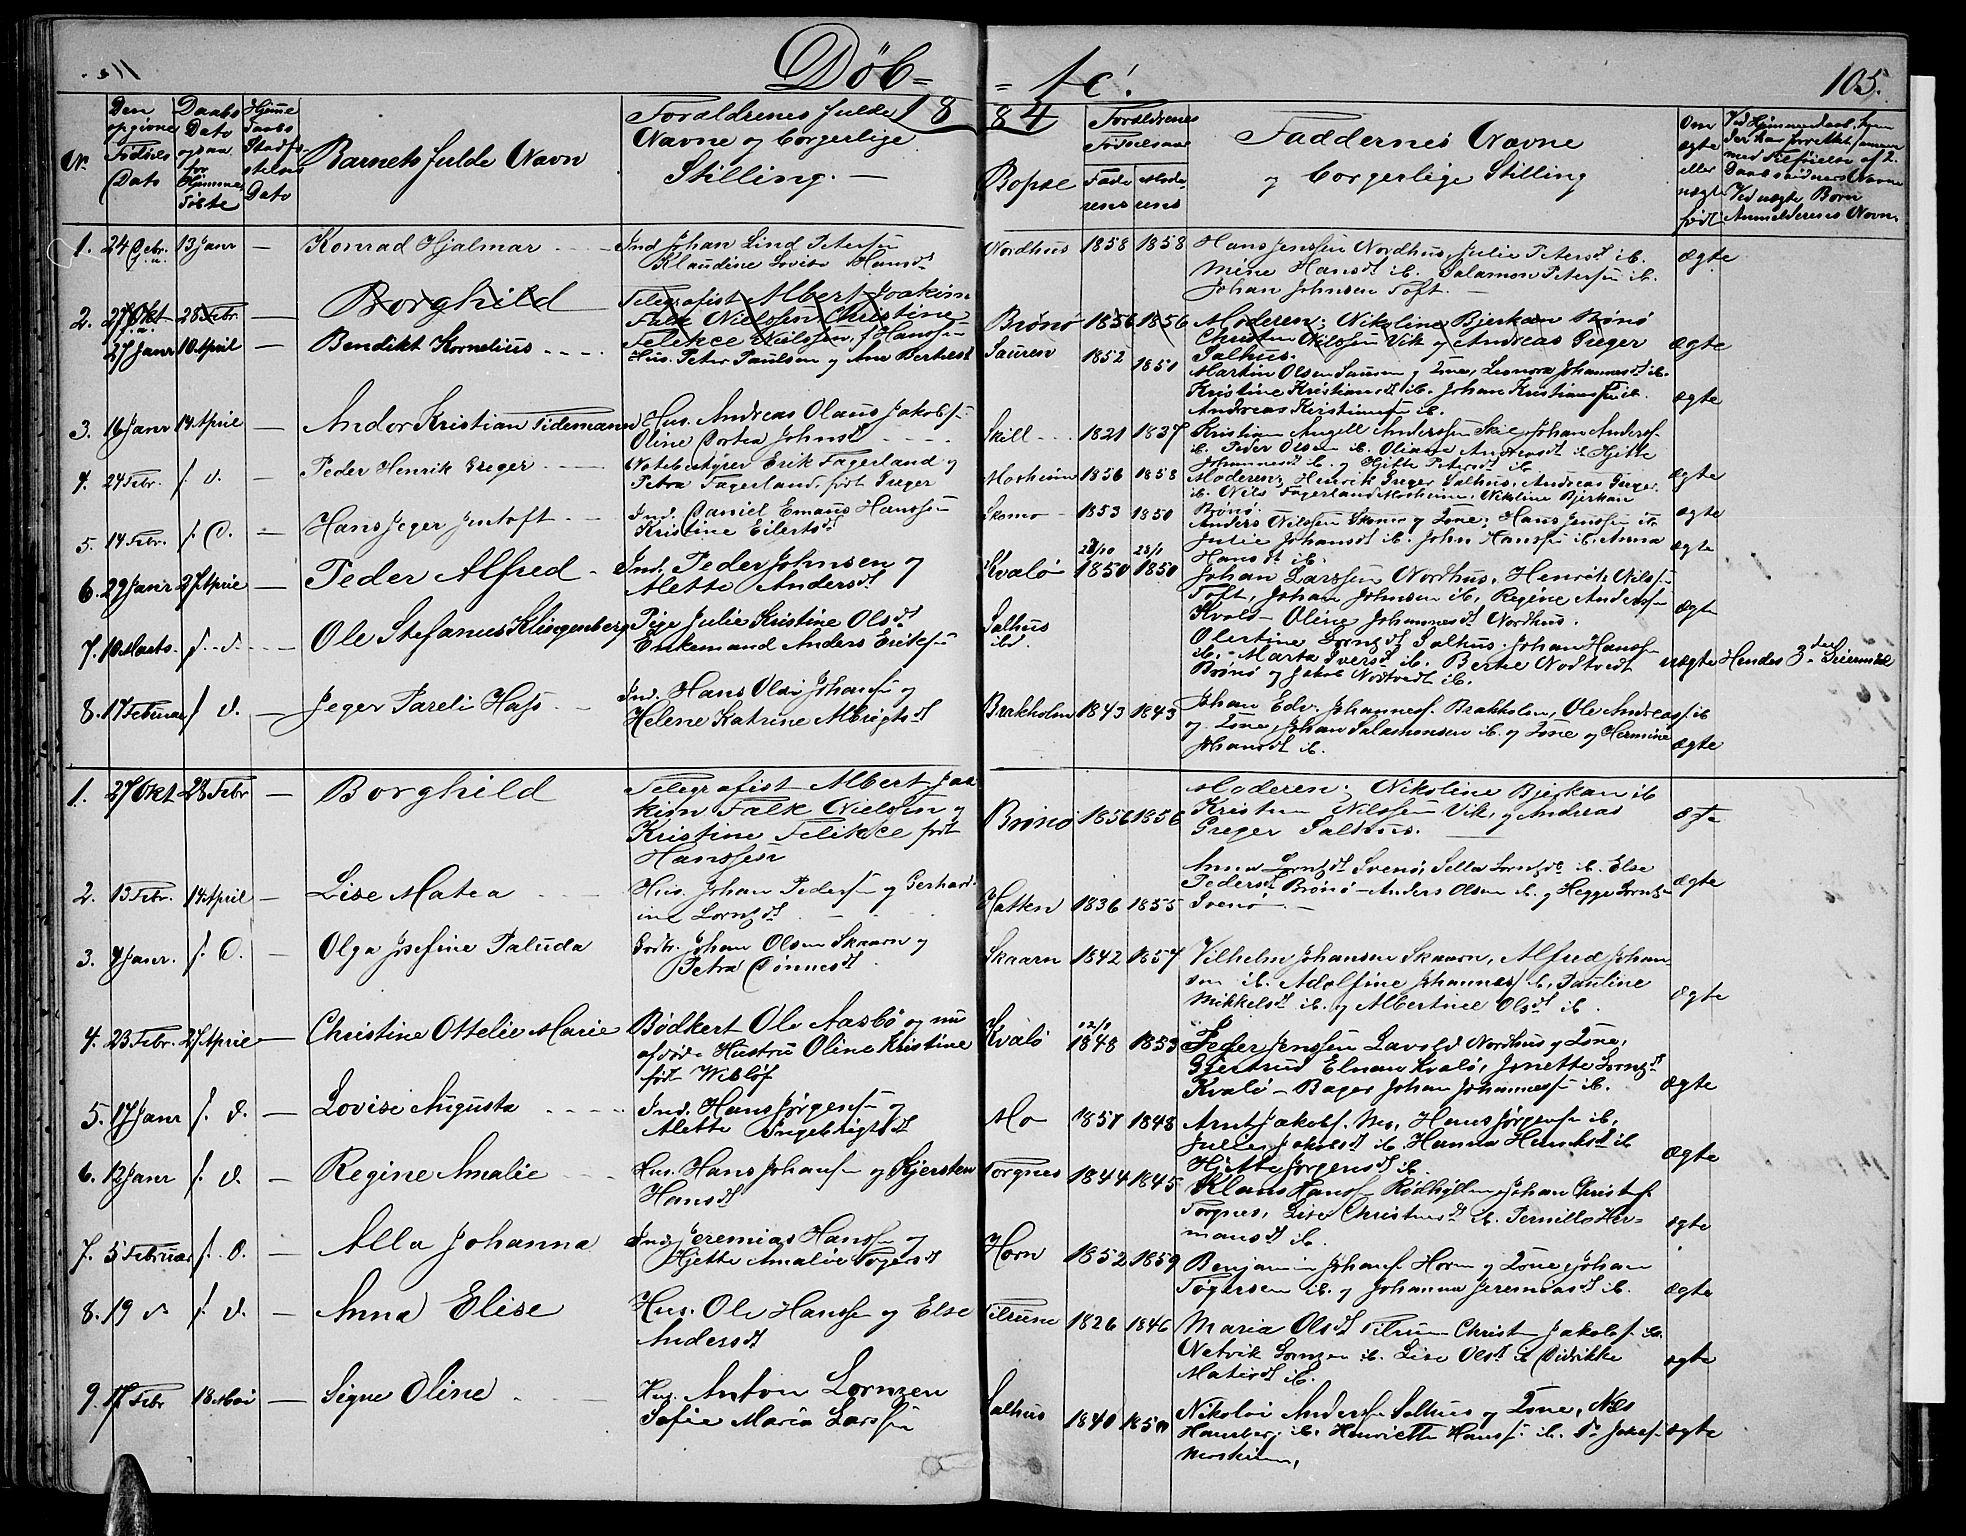 Døb= = te!
105.
18 84
No.
Den opgivne Fødsels Dato
Daabs Dato ogsaa for Hjemme Døbte
Hjemme Daabs Stadfæ stelses Dato
Barnets fulde Navn
Forældrenes fulde Navne og borgerlige Stilling. —
Bopæl
Forældrenes Fødselsaar
Fade rens
Mode rens
Faddernes Navne og borgerlige Stilling
Om ægte eller uægte født
1. 24 Febr. 13 Janr — Konrad Hjalmar Ind. Johan Lind Petersen Nordhus 1858 1858 Hans Jenssen Nordhus, Julie Petersdt ib.
Klaudine Lovise Hansdt Mine Hansdt ib. Salamon Petersen ib. ægte
Johan Johnsen Toft. —
2. 27 Okt. 28 Febr. — Borghild Telegrafist Albert Joakim
Falk Nielssen Christine Brønø 1856 1856 Moderen; Nikoline Bjerkan Brønø
Felicce Nielssen f. Hanssen Christen Nilssen Vik og Andreas Greger Salhus. ægte
27 Janr 10 April Bendikt Kornelius Hus. Peter Paulsen og Ane Berhesdt Sauren 1852 1851
Martin Olsen Sauren og Kone, Leonora Johannesdt ib.
Kristine Kristiansdt ib. Johan Kristiansen ib.
Andreas Kirstinesen ib. ægte
3. 16 Janr 14 April — Andor Kristian Tidemann Hus. Andreas Olaus Jakobsen
Oline Dortea Johnsdt Skill 1821 1837 Kristian Angell Anderssen Skil, Johan Anderss.
ib. Peder Olsen ib. Oliana Andreasdt ib Hjitte
Johannesdt ib. og Hjitte Petersdt ib. ægte
4. 24 Febr. s. d. — Peder Henrik Greger Notebestyrer Erik Fagerland og
Petra Fagerland født Greger Mosheim 1856 1858 Moderen; Henrik Greger Salhus, Andreas Greger
ib. Nils Fagerland Mosheim, Nikoline Bjerkan Brønø. ægte
5. 14 Febr. s. D. — Hans Jeger Jentoft Ind. Daniel Emaus Hanssen
Kristine Eilertsdt Skomo 1853 1850 Anders Nilssen Skomo og Kone; Hans Jenssen ib
Julie Johansdt ib. John Hanssen ib. Anna Hansdt ib. ægte
6. 29 Janr 27 April — Peder Alfred Ind. Peder Johnsen og
Alette Andersdt Kvalø 28/10 1850 28/1 1850 Johan Larssen Nordhus, Henrik Nilss
Toft, Johan Johnsen ib, Regine Anderss
Kvalø – Oline Johannesdt Nordhus. ægte
7. 10 Marts. s. d. Ole Stefanus Klingenberg Pige Julie Kristine Olsdt
Enkemand Anders Eriksen Salhus ibd. Olertine Lorntsdt Salhus. Johan Hanssen
ib. – Marta Iversdt ib. Berte Nodtvedt
Brønø og Jakob Nodtvedt ib. uægte Hendes 3die Leiermaal
8. 17 Februar s. d. — Jeger Pareli Hass Ind. Hans Olai Johansen og
Helene Katrine Albrigtsdt Brakholm 1843 1843 Johan Edv. Johanness. Brakholm, Ole Andreass. ib
og Kone, Johan Salamonsen ib. og Kone og Hermine
Johansdt ib. ægte
1. 27 Okt 28 Febr — Borghild Telegrafist Albert Joa
kim Falk Nielssen og
Kristine Felicce født
Hanssen Brønø 1856 1856 Moderen; Nikoline Bjerkan ib
Kristen Nilssen Vik, og Andreas
Greger Salhus. ægte
2. 13 Febr. 14 April — Lise Matea Hus. Johan Pedersen og Gerhard
ine Lorntzdt Hatten 1836 1855 Anna Lorntzdt Svenø, Sella Lorntzdt ib. Else
Pedersdt Brønø – Anders Olsen ib. og Hegge Lorntz
Svenø. — ægte
3. 4 Janr. s. D. — Olga Josefine Paluda Gdbr. Johan Olsen Skaarn og
Petra Dønnesdt Skaarn 1842 1857 Vilhelm Johansen Skaarn, Alfred Johan
sen ib. Adolfine Johanness ib, Pauline
Mikkelsdt ib. og Albertine Olsdt ib. ægte
4. 23 Febr. 27 April — Christine Ottelie Marie Bødkert Ole Aasbø og nu
afdøde Hustru Oline Kristine
født Wisløf Kvalø 12/1 1848 1853 Peder Jenssen Lavold Nordhus og Kone,
Gjertrud Elnan Kvalø, Jonette Lorntzdt
Kvalø – Bager Johan Johannessen ib. ægte
5. 17 Janr s. d. — Lovise Augusta Ind. Hans Jørgensen og
Alette Ingebrigtsdt Mo 1857 1848 Arnt Jakobs. Mo, Hans Jørgensen ib,
Julie Jakobsdt ib. Hanna Hansdt ib
Hjitte Jørgensdt ib. ægte
6. 12 Janr s. d. — Regine Amalie Hus. Hans Johansen og Kjersten
Hansdt Torgnes 1844 1845 Klaus Hanss Rødhyllen, Johan Christens.
Torgnes, Lise Christensdt ib. Pernilla Her=
mansdt ib. ægte
7. 5 Februar s. d. Alla Johanna Ind. Jeremias Hanssen og
Hjette Amalie Tøgersdt Horn 1852 1859 Benjamin Johans. Horn og Kone, Johan
Tøgersen ib. og Johanna Jeremiasdt ib. ægte
8. 19 d s. d. — Anna Elise Hus. Ole Hanssen og Else
Andersdt Tilrume 1826 1846 Maria Olsdt Tilrum Christen Jakobs. ib.
Netvik Lornzen ib. Lise Olsdt ib Didrikke
Matisdt ib. ægte
9. 17 Febr 18 Mai — Signe Oline Hus. Anton Lornzen
Sofie Maria Larssen Salhus 1840 1850 Nikolai Anderssen Salhus og Kone, Nils
Hamber ib. Henriette Hanss. ib. Josef
Mosheim, ægte